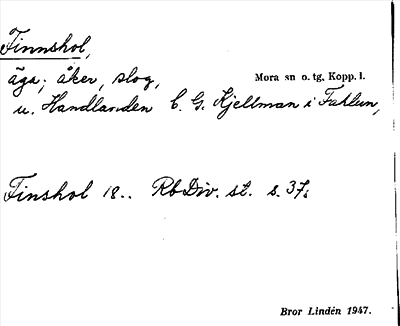 Finnshol,
äga; åker, slog,
Mora sn o. tg, Kopp. l.
u. Handlanden C. G. Kjellman i Fahlun,
Finshol 18.. RbDiv. st. s. 37;
Bror Lindén 1947.